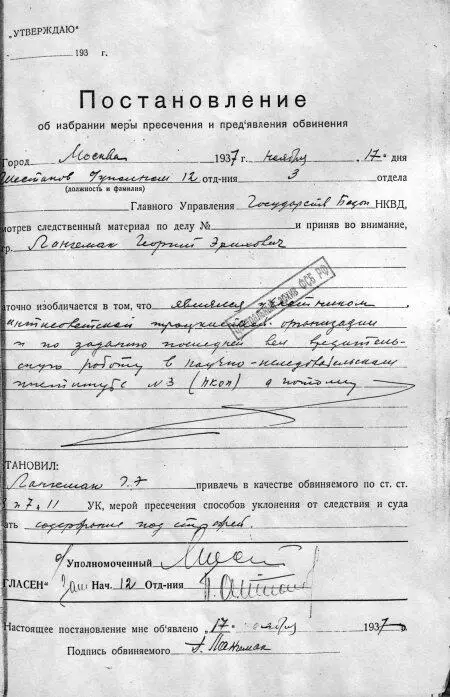 „УТВЕРЖДАЮ"
193 г.
Постановление
об избрании меры пресечения и пред'явления обвинения
Город Москва 1937 г. ноября 17 дня
12 отд-ния 3 отдела
(должность и фамилия)
Главного Управления Государств Безоп НКВД,
мотрев следственный материал по делу № и приняв во внимание,
гр. Лангемак Георгий Эрихович
аточно изобличается в том, что являлся участником
антисоветской троцкистской организации
и по заданию последней вел вредитель-
скую работу в научно-исследовательском
институте №3 (НКОП) а потому
ТАНОВИЛ:
Лангемак Г.Э привлечь в качестве обвиняемого по ст. ст.
7 и 11 УК, мерой пресечения способов уклонения от следствия и суда
ать содержание под стражей.
о/Уполномоченный
ГЛАСЕН" Зам Нач. 12 Отд-ния
Настоящее постановление мне об'явлено „17" ноября 1937 г.
Подпись обвиняемого Г. Лангемак